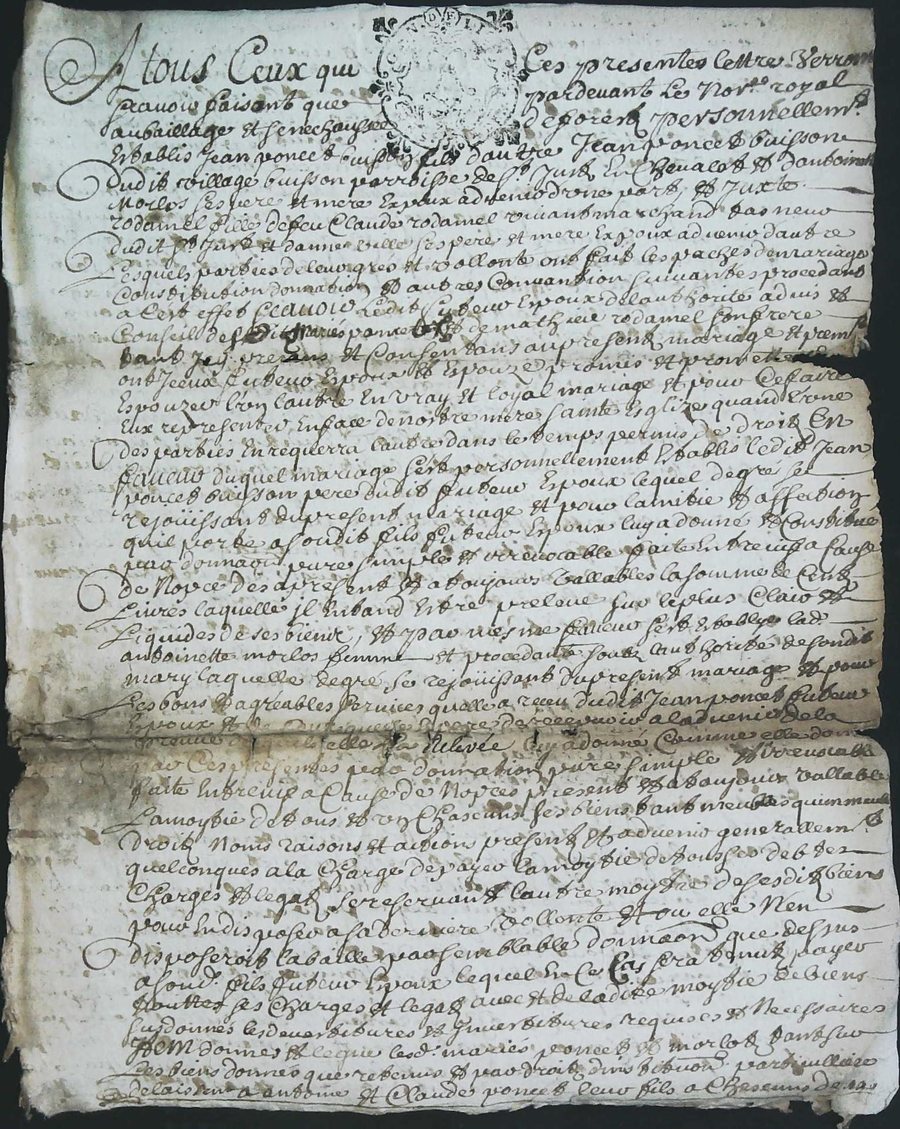 A tous Ceux qui Ces presentes lettre Verront
scavoir faisant que pardevant Le Nore royal
au baillage et senechaussee de forest personnellemt
Establis Jean poncet buisson fils d'autre Jean poncet buisson
dudit village buisson parroisse de St Just En Chevalet et d'antoinette
Morlos ses pere et mere Epoux advenir d'une part, et Juxte
rodamel fille de feu Claude rodamel vivant marchand
dudit St Just et d'anne ses pere et mere Expoux advenir d'autre
Lesquels parties de leur gres et vollonte ont fait les paches de mariage
Constitution donnation et autres Convantion suivantes procedant
a Cest effet scavoir Ledit futeur Epoux de l'authorité advis et
Conseil desdit maries poncet et de mathieu rodamel son frere
Jcy presens et Consentans au present mariage et
ont Jceux futeur Epoux et Epouze promis et promettent
Espouzer l'un l'autre En vray et Loyal mariage et pour Ce faire
Eux representer En face de nostre mere sainte Esglize quand l'une
des parties En requerra l'autre dans le temps permis de droit En
faveur duquel mariage s'est personnellement Establis ledit Jean
poncet buisson pere dudit futeur Epoux lequel de gré se
rejoüissant du present mariage et pour lamitie et affection
quil porte a sondit fils futeur Epoux luy a donné et Constitue
par donnaon pure simple et irrevocable faite Entre vifs a Cause
de Nopces des apresent et a toujours vallables la somme de Cent
Livres laquelle il Entand Estre preleve sur le plus Clair et
Liquides de ses biens, et par mesme faveur s'est Establye lade
antoinette morlos femme et procedant soubz l'authorité de sondit
mary laquelle de gre se rejouissant du present mariage et pour
Les bons et agreables services quelle a receu dudit Jean poncet futeur
Epoux et Espere de recepvoir a ladvenir de la
preuve elle La Relevée luy a donné Comme elle donne
par Ces presentes par donnation pure simple et irrevocable
faite Entre vifs a Cause de Nopces present et a toujours vallable
Lamoytie de tous et un Chascuns ses biens tant meubles qu'immeuble
droit Noms raisons et actions present et advenir generallemt
quelconques a la Charge de payer lamoytie de tous ses debtes
Charges et legatz se reservant l'autre moytie de sesdit biens
pour En disposer a sa derniere vollonte et ou elle Nen
disposeroit la baille par semblable donnaon que dessus
a sond. fils futeur Epoux lequel En Ce Cas sera tenut payer
touttes ses Charges et legatz avec et de ladite moytie de biens
susdonnes les devertitures et Jnvertitures requises et Necessaires
donnes et legue lesd. mariés poncet et morlot tant sur
Les biens donnes que retenus et par droit dinstitution particulliere
delaissent a antoine et Claude poncet leur fils a Chascuns de